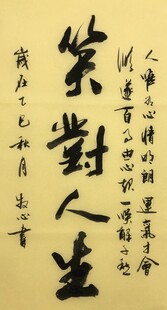 人唯有心情明朗運氣才會
順遂百事由心起一咲解千愁
笑對人生
歲在乙巳秋月 牧心書